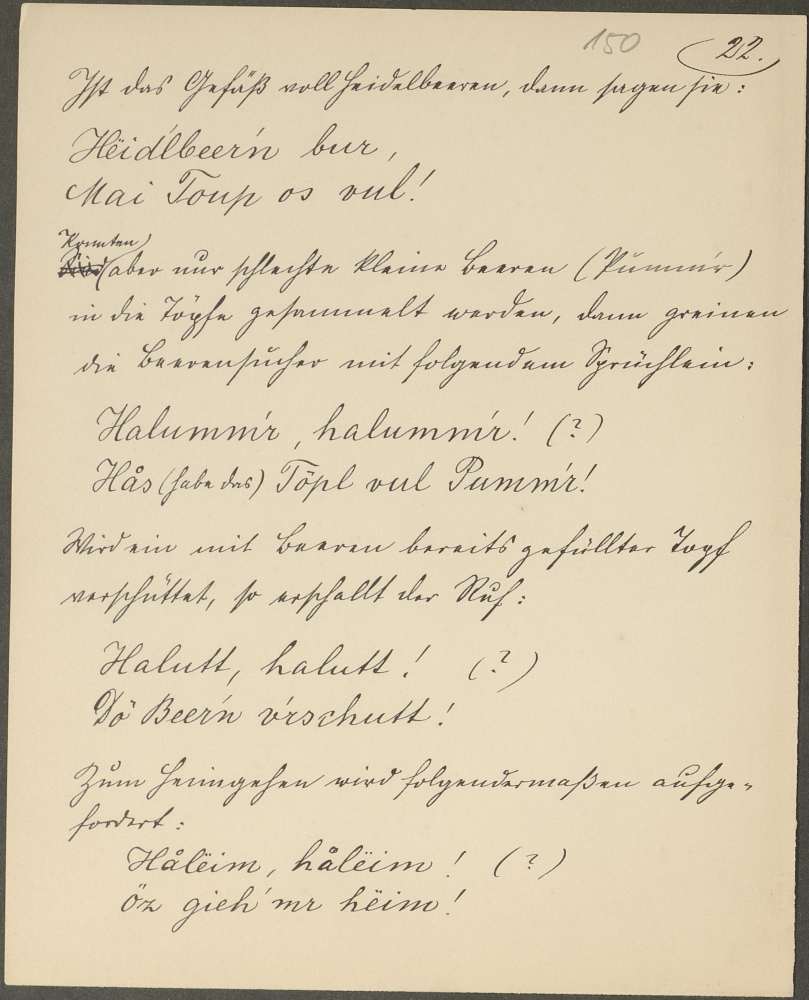 150
22.
Ist das Gefäß voll Heidelbeeren, dann sagen sie:
Hëid'lbeer'n bur,
Mai Toup os vul!
Konnten
aber nur schlechte kleine Beeren (Pumm'r)
in die Töpfe gesammelt werden, dann greinen
die Beerensucher mit folgendem Sprüchlein:
Halumm'r, halumm'r! (?)
Hås (habe das) Töpl vul Pumm'r!
Wird ein mit Beeren bereits gefüllter Topf
verschüttet, so erschallt der Ruf:
Halutt, halutt! (?)
Dö Beer'n v'rschutt!
Zum Heimgehen wird folgendermaßen aufge-
fordert:
Hålëim, hålëim! (?)
Öz gieh' mr hëim!